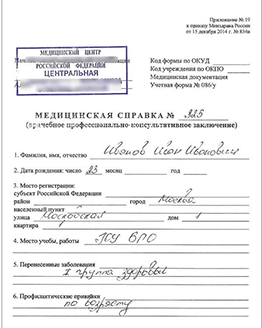 Приложение № 19
к приказу Минздрава России
от 15 декабря 2014 г. № 834н
МЕДИЦИНСКИЙ ЦЕНТР
РОССИЙСКОЙ ФЕДЕРАЦИИ
ЦЕНТРАЛЬНАЯ
Код формы по ОКУД
Код учреждения по ОКПО
Медицинская документация
Учетная форма № 086/у
МЕДИЦИНСКАЯ СПРАВКА № 325
(врачебное профессионально-консультативное заключение)
1. Фамилия, имя, отчество Иванов Иван Иванович
2. Дата рождения: число 23 месяц год
3. Место регистрации:
субъект Российской Федерации
район город Москва
населенный пункт
улица Московская дом 1
квартира
4. Место учебы, работы
5. Перенесенные заболевания
I группа здоровья
6. Профилактические прививки
по возрасту